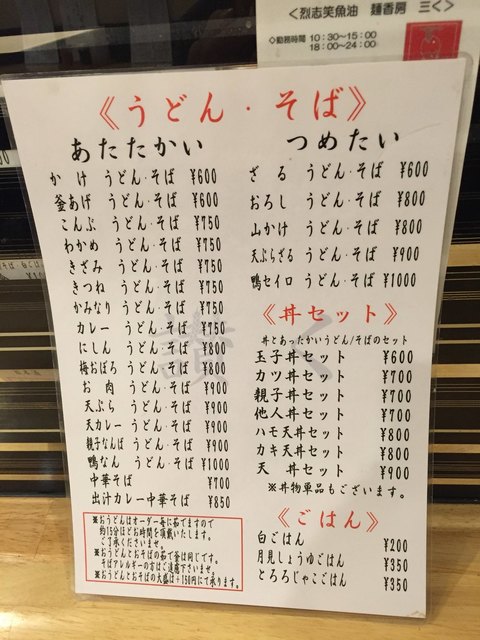 ＜烈志笑魚油　麺香房　三く＞
◇勤務時間　10：30～15：00
18：00～24：00
《うどん・そば》
あたたかい
かけ　うどん・そば　¥600
釜あげ　うどん・そば　¥600
こんぶ　うどん・そば　¥750
わかめ　うどん・そば　¥750
きざみ　うどん・そば　¥750
きつね　うどん・そば　¥750
かみなり　うどん・そば　¥750
カレー　うどん・そば　¥750
にしん　うどん・そば　¥800
梅おぼろ　うどん・そば　¥800
お肉　うどん・そば　¥900
天ぷら　うどん・そば　¥900
天カレー　うどん・そば　¥900
親子なんば　うどん・そば　¥900
鴨なん　うどん・そば　¥1000
中華そば　¥700
出汁カレー中華そば　¥850
※おうどんはオーダー毎に茹でますので
約15分ほどお時間を頂戴いたします。
ご了承くださいませ。
※おうどんとおそばの茹で釜は同じです。
そばアレルギーの方はご遠慮下さいませ。
※おうどんとおそばの大盛は＋150円にて承ります。
つめたい
ざる　うどん・そば　¥600
おろし　うどん・そば　¥800
山かけ　うどん・そば　¥800
天ぷらざる　うどん・そば　¥900
鴨セイロ　うどん・そば　¥1000
《丼セット》
丼とあったかいうどん/そばのセット
玉子丼セット　¥600
カツ丼セット　¥700
親子丼セット　¥700
他人丼セット　¥700
ハモ天丼セット　¥800
カキ天丼セット　¥800
天　丼セット　¥900
※丼物単品もございます。
《ごはん》
白ごはん　¥200
月見しょうゆごはん　¥350
とろろじゃこごはん　¥350